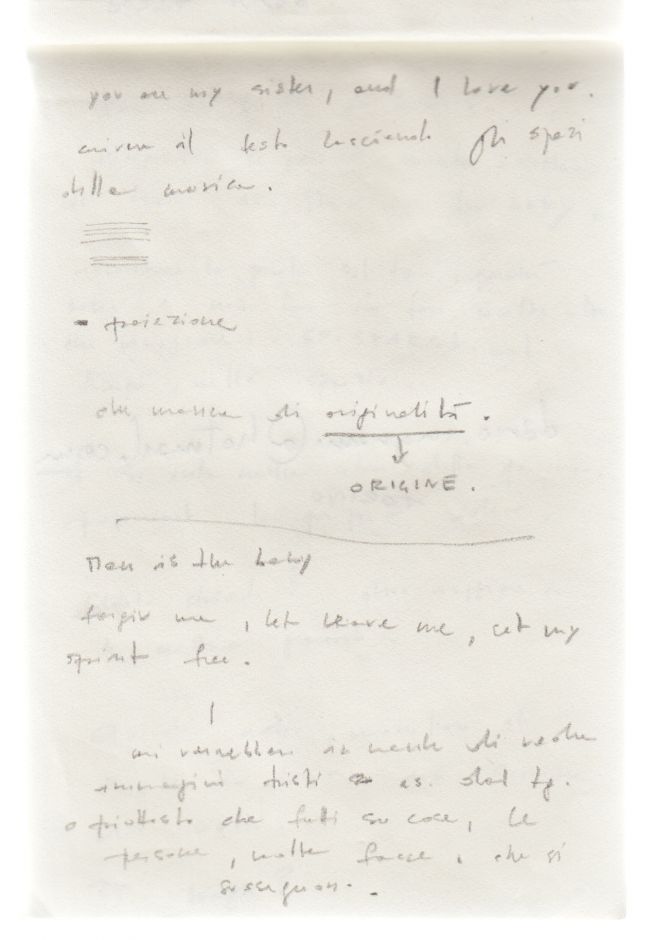 you are my sister, and I love you.
il testo lasciando gli spazi
della musica.
- proiezione
di originalità.
ORIGINE.
Man is the baby
forgive me, let leave me, set my
spirit free.
in mente di vedere
immagini tristi es. dal tg.
o piuttosto che fatti su cose, le
persone, molte facce, che si
susseguono.